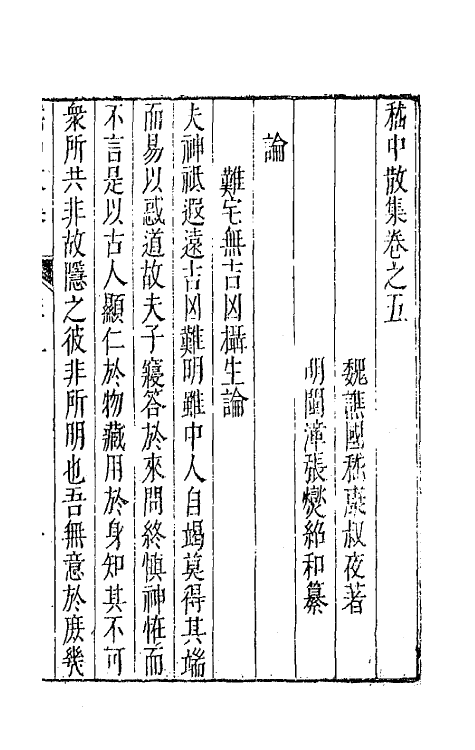 嵇中散集卷之五
魏譙國嵇康叔夜著
明閩漳張燮紹和纂
論
難宅無吉凶攝生論
夫神祗遐遠吉凶難明雖中人自竭莫得其端
而易以惑道故夫子寢答於來問終慎神恠而
不言是以古人顯仁於物藏用於身知其不可
衆所共非故隱之彼非所明也吾無意於庶幾